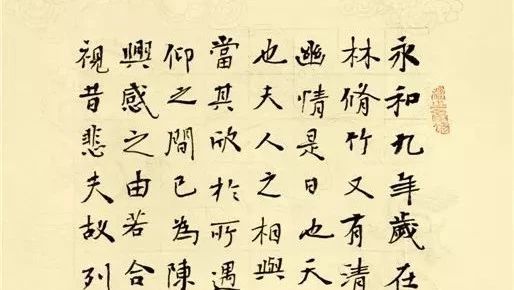 永和九年歲在
林脩竹又有清
幽情是日也天
也夫人之相與
當其欣於所遇
仰之間已為陳
興感之由若合
視昔悲夫故列